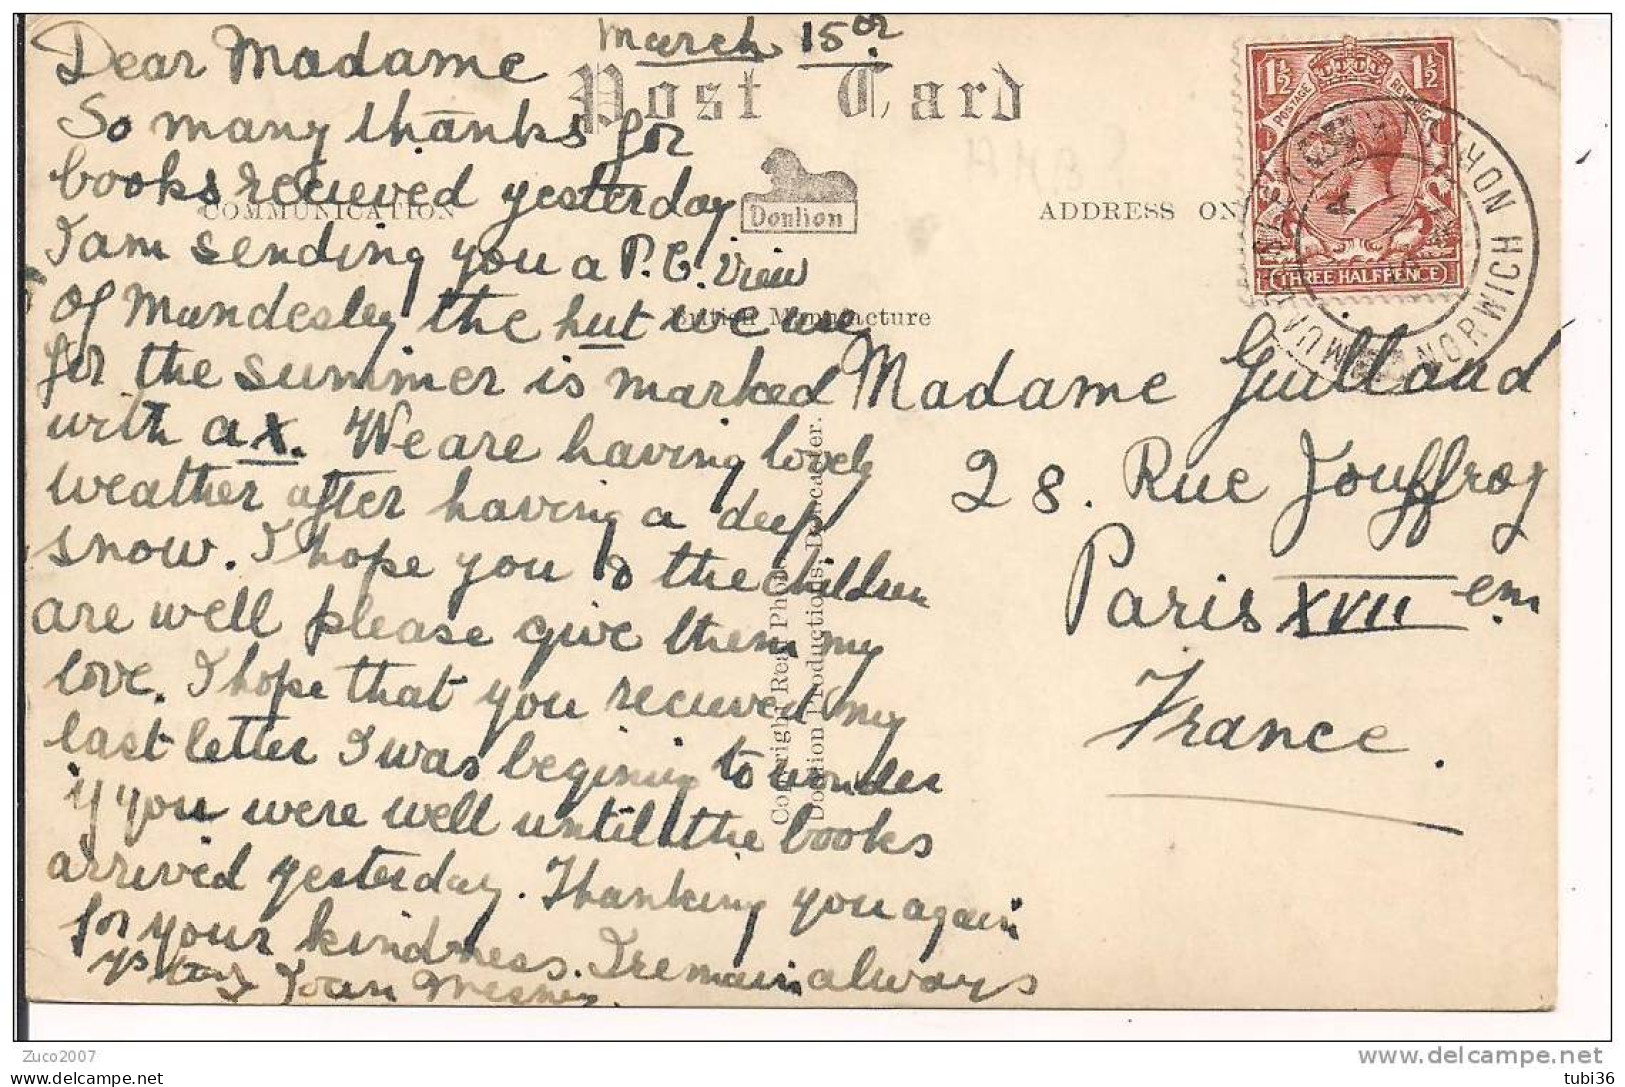 March 15
Dear Madame
Post Card
So many thanks for
books recieved yesterday
COMMUNICATION
Donlion
ADDRESS ON
I am sending you a P.C. view
of Mundesley the hut we use
British Manufacture
for the summer is marked
with a X. We are having lovely
weather after having a deep
snow. I hope you & the children
are well please give them my
love. I hope that you recieved my
last letter I was begining to wonder
if you were well until the books
arrived yesterday. Thanking you again
for your kindness. I remain always
Joan
1½ 1½
POSTAGE REVENUE
THREE HALFPENCE
NORTH WALSHAM
NORWICH
Madame Guilland
28. Rue Jouffroy
Paris XVII em
France.
Copyright Real Photo
Donlion Productions, Doncaster.
Zuco2007
www.delcampe.net
tubi36